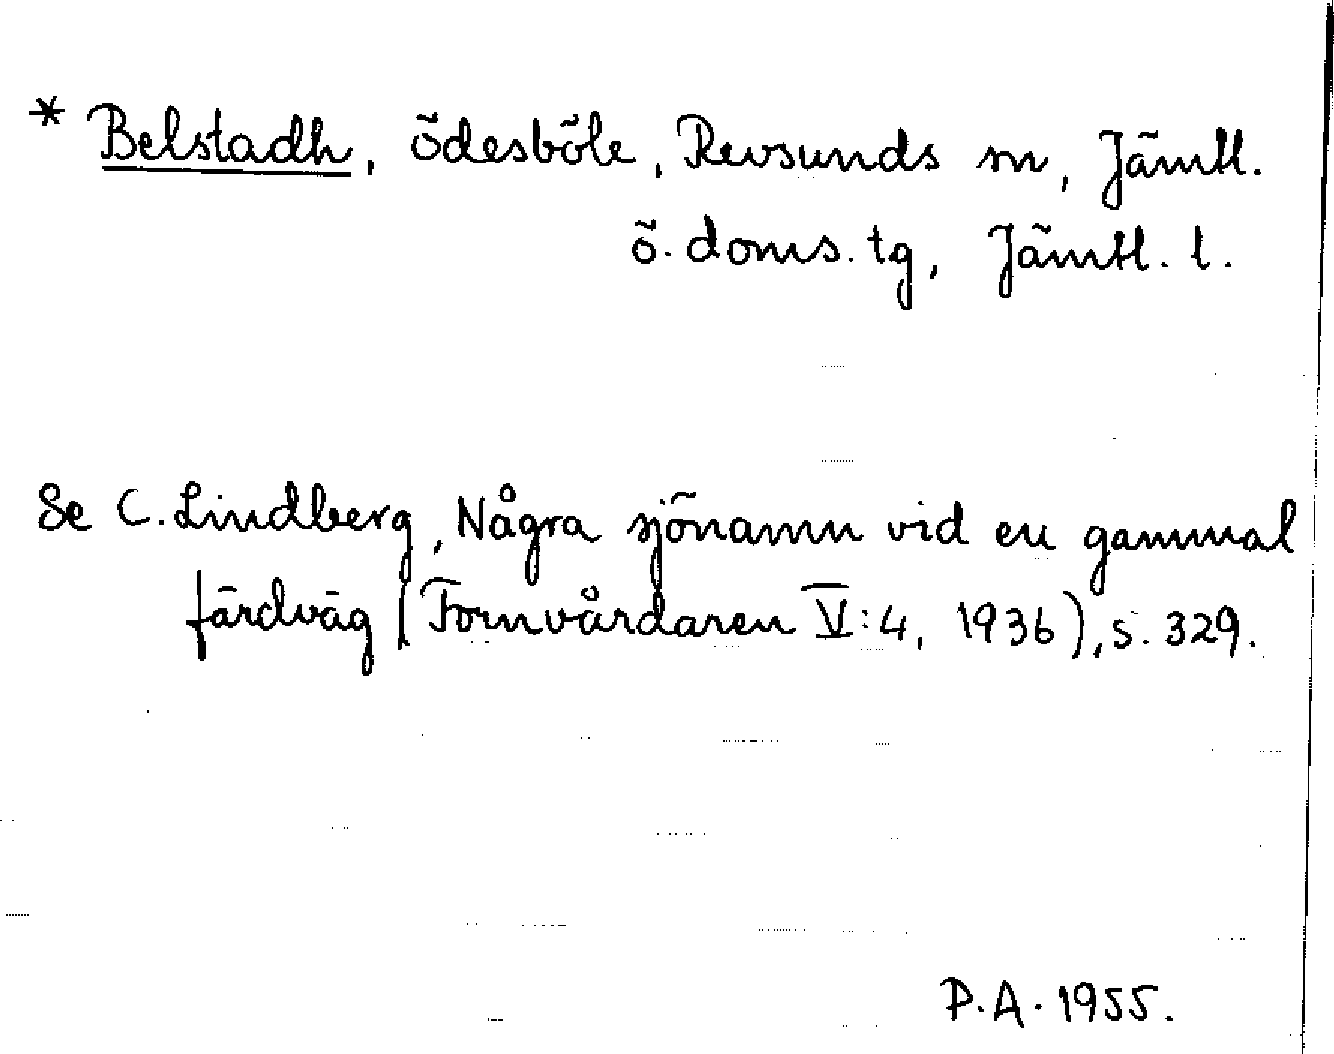 * Belstadh, ödesböle, Revsunds sn, Jämtl.
ö. doms. tg, Jämtl. l.
Se C. Lindberg, Några sjönamn vid en gammal
färdväg (Fornvårdaren V:4, 1936), s. 329.
P.A. 1955.